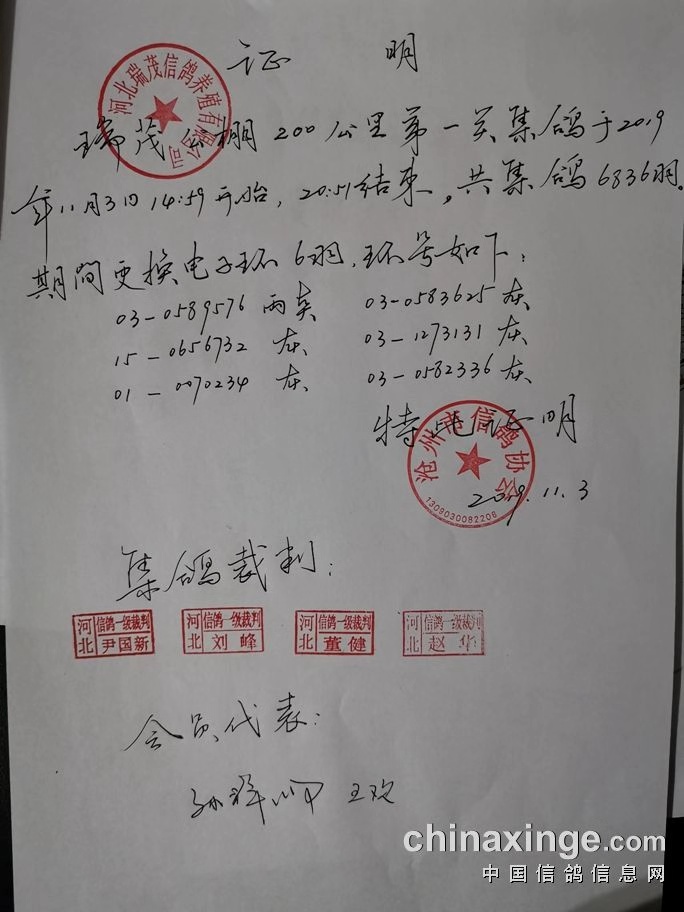 证 明
河北瑞茂信鸽养殖有限公司
瑞茂公棚200公里第一关集鸽于2019
年11月3日14:59开始,20:51结束。共集鸽6836羽。
期间更换电子环6羽,环号如下:
03-0589576 雨夹 03-0583625 灰
15-0656732 灰 03-1273131 灰
01-0070234 灰 03-0582336 灰
特此证明
沧州市信鸽协会
1309030082208
2019.11.3
集鸽裁判:
河北 信鸽一级裁判 尹国新 河北 信鸽一级裁判 刘峰 河北 信鸽一级裁判 董健 河北 信鸽一级裁判 赵华
会员代表:
孙祥 王欢
chinaxinge.com
中国信鸽信息网